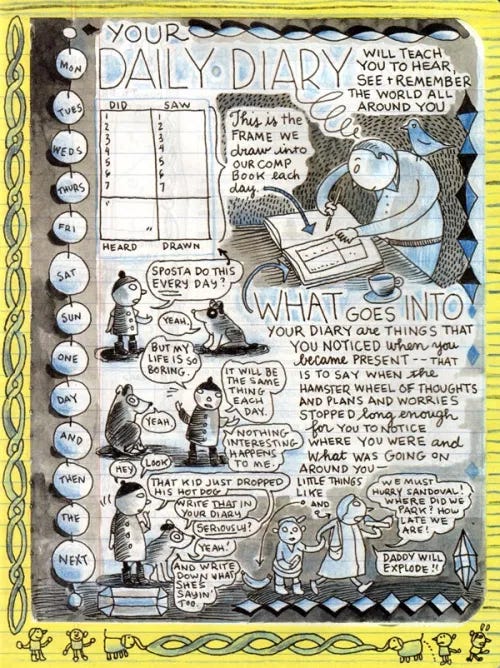 YOUR
DAILY DIARY
WILL TEACH
YOU TO HEAR,
SEE + REMEMBER
THE WORLD ALL
AROUND YOU
MON
TUES
WEDS
THURS
FRI
SAT
SUN
ONE
DAY
AND
THEN
THE
NEXT
DID SAW
1 1
2 2
3 3
4 4
5 5
6 6
7 7
"
"
HEARD DRAWN
This is the
FRAME WE
draw into
OUR COMP
BOOK each
day.
SPOSTA DO THIS
EVERY DAY?
YEAH.
BUT MY
LIFE IS SO
BORING.
IT WILL BE
THE SAME
THING
EACH
DAY.
YEAH
NOTHING
INTERESTING
HAPPENS
TO ME.
HEY
LOOK
THAT KID JUST DROPPED
HIS HOT DOG
WRITE THAT IN
YOUR DIARY
SERIOUSLY?
YEAH!
AND WRITE
DOWN WHAT
SHE'S
SAYIN'
TOO.
WHAT GOES INTO
YOUR DIARY are THINGS THAT
YOU NOTICED when you
became PRESENT -- THAT
IS TO SAY WHEN the
HAMSTER WHEEL OF THOUGHTS
AND PLANS AND WORRIES
STOPPED long enough
for YOU TO NOTICE
WHERE YOU WERE and
what WAS GOING ON
AROUND YOU—
LITTLE THINGS
LIKE
AND
WE MUST
HURRY SANDOVAL!
WHERE DID WE
PARK? HOW
LATE WE
ARE!
DADDY WILL
EXPLODE!!